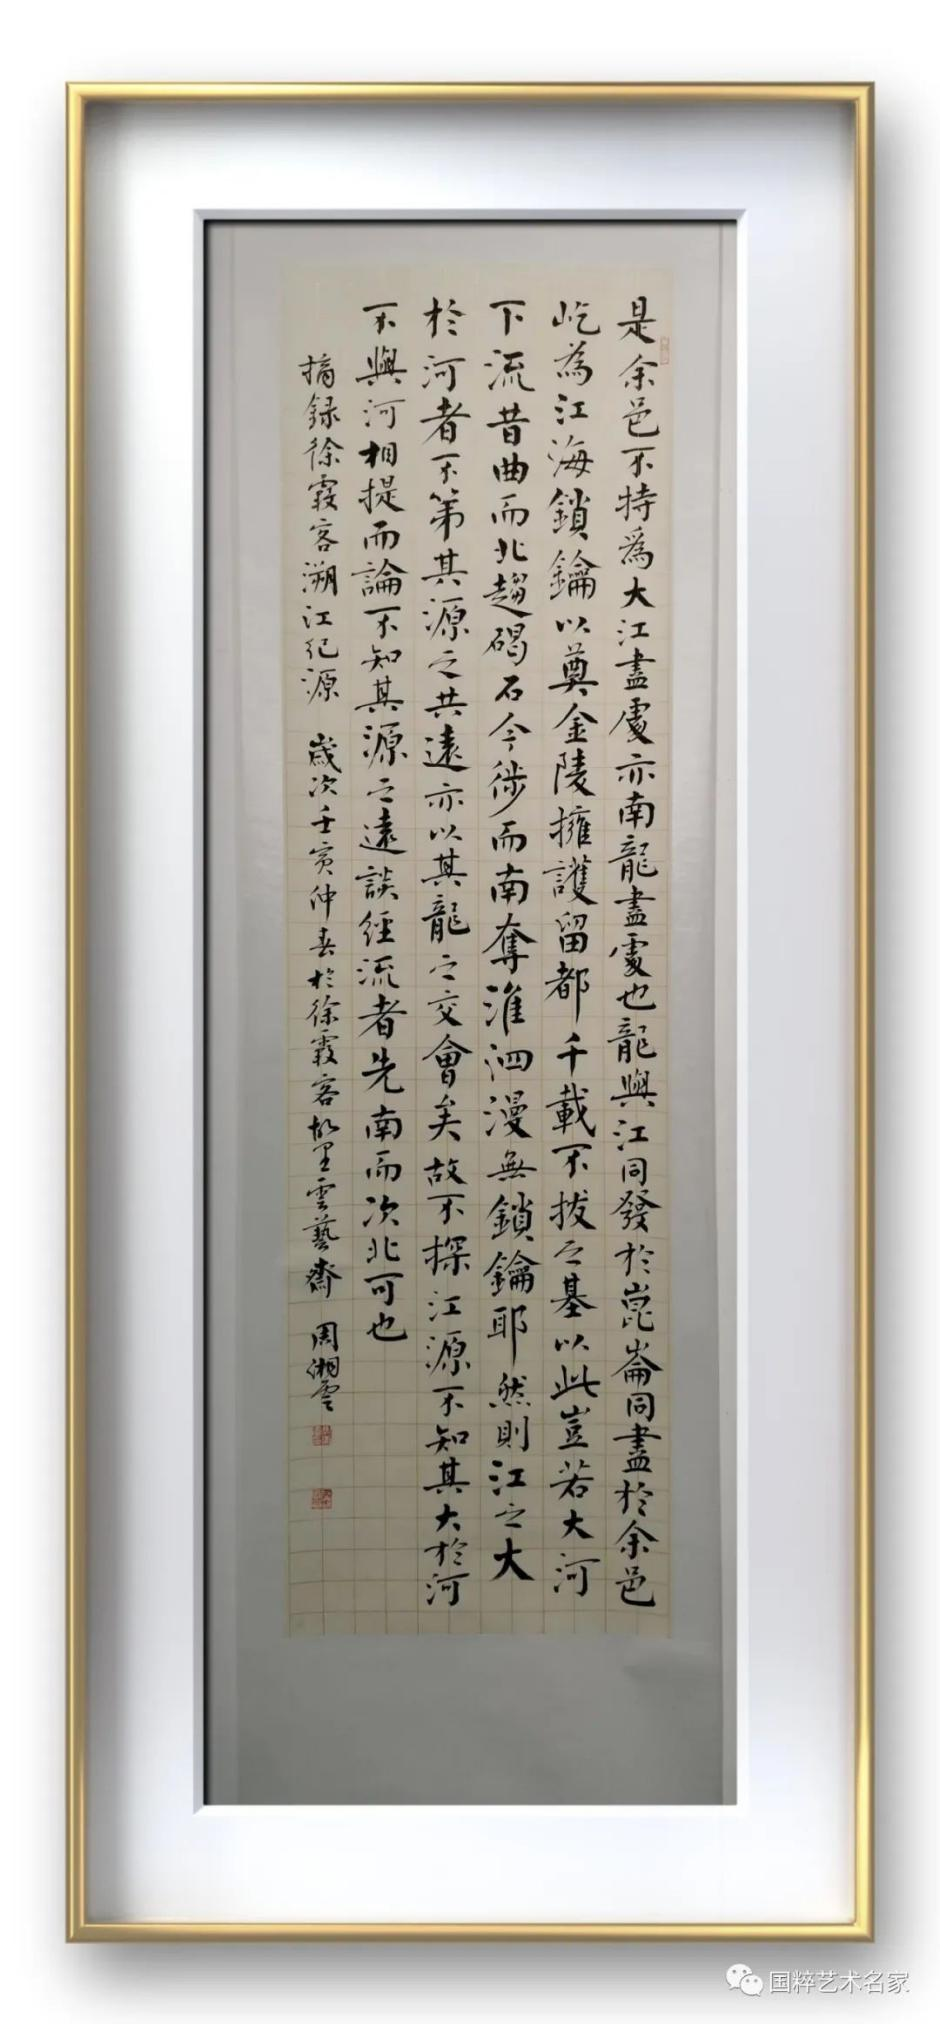 是余邑不特為大江盡處亦南龍盡處也龍與江同發於崑崙同盡於余邑
屹為江海鎖鑰以奠金陵擁護留都千載不拔之基以此豈若大河
下流昔曲而北趨碣石今徙而南奪淮泗漫無鎖鑰耶然則江之大
於河者不第其源之共遠亦以其龍之交會矣故不探江源不知其大於河
不與河相提而論不知其源之遠談經流者先南而次北可也
摘録徐霞客溯江纪源 歲次壬寅仲春於徐霞客故里雲藝齋 周湘雲
国粹艺术名家